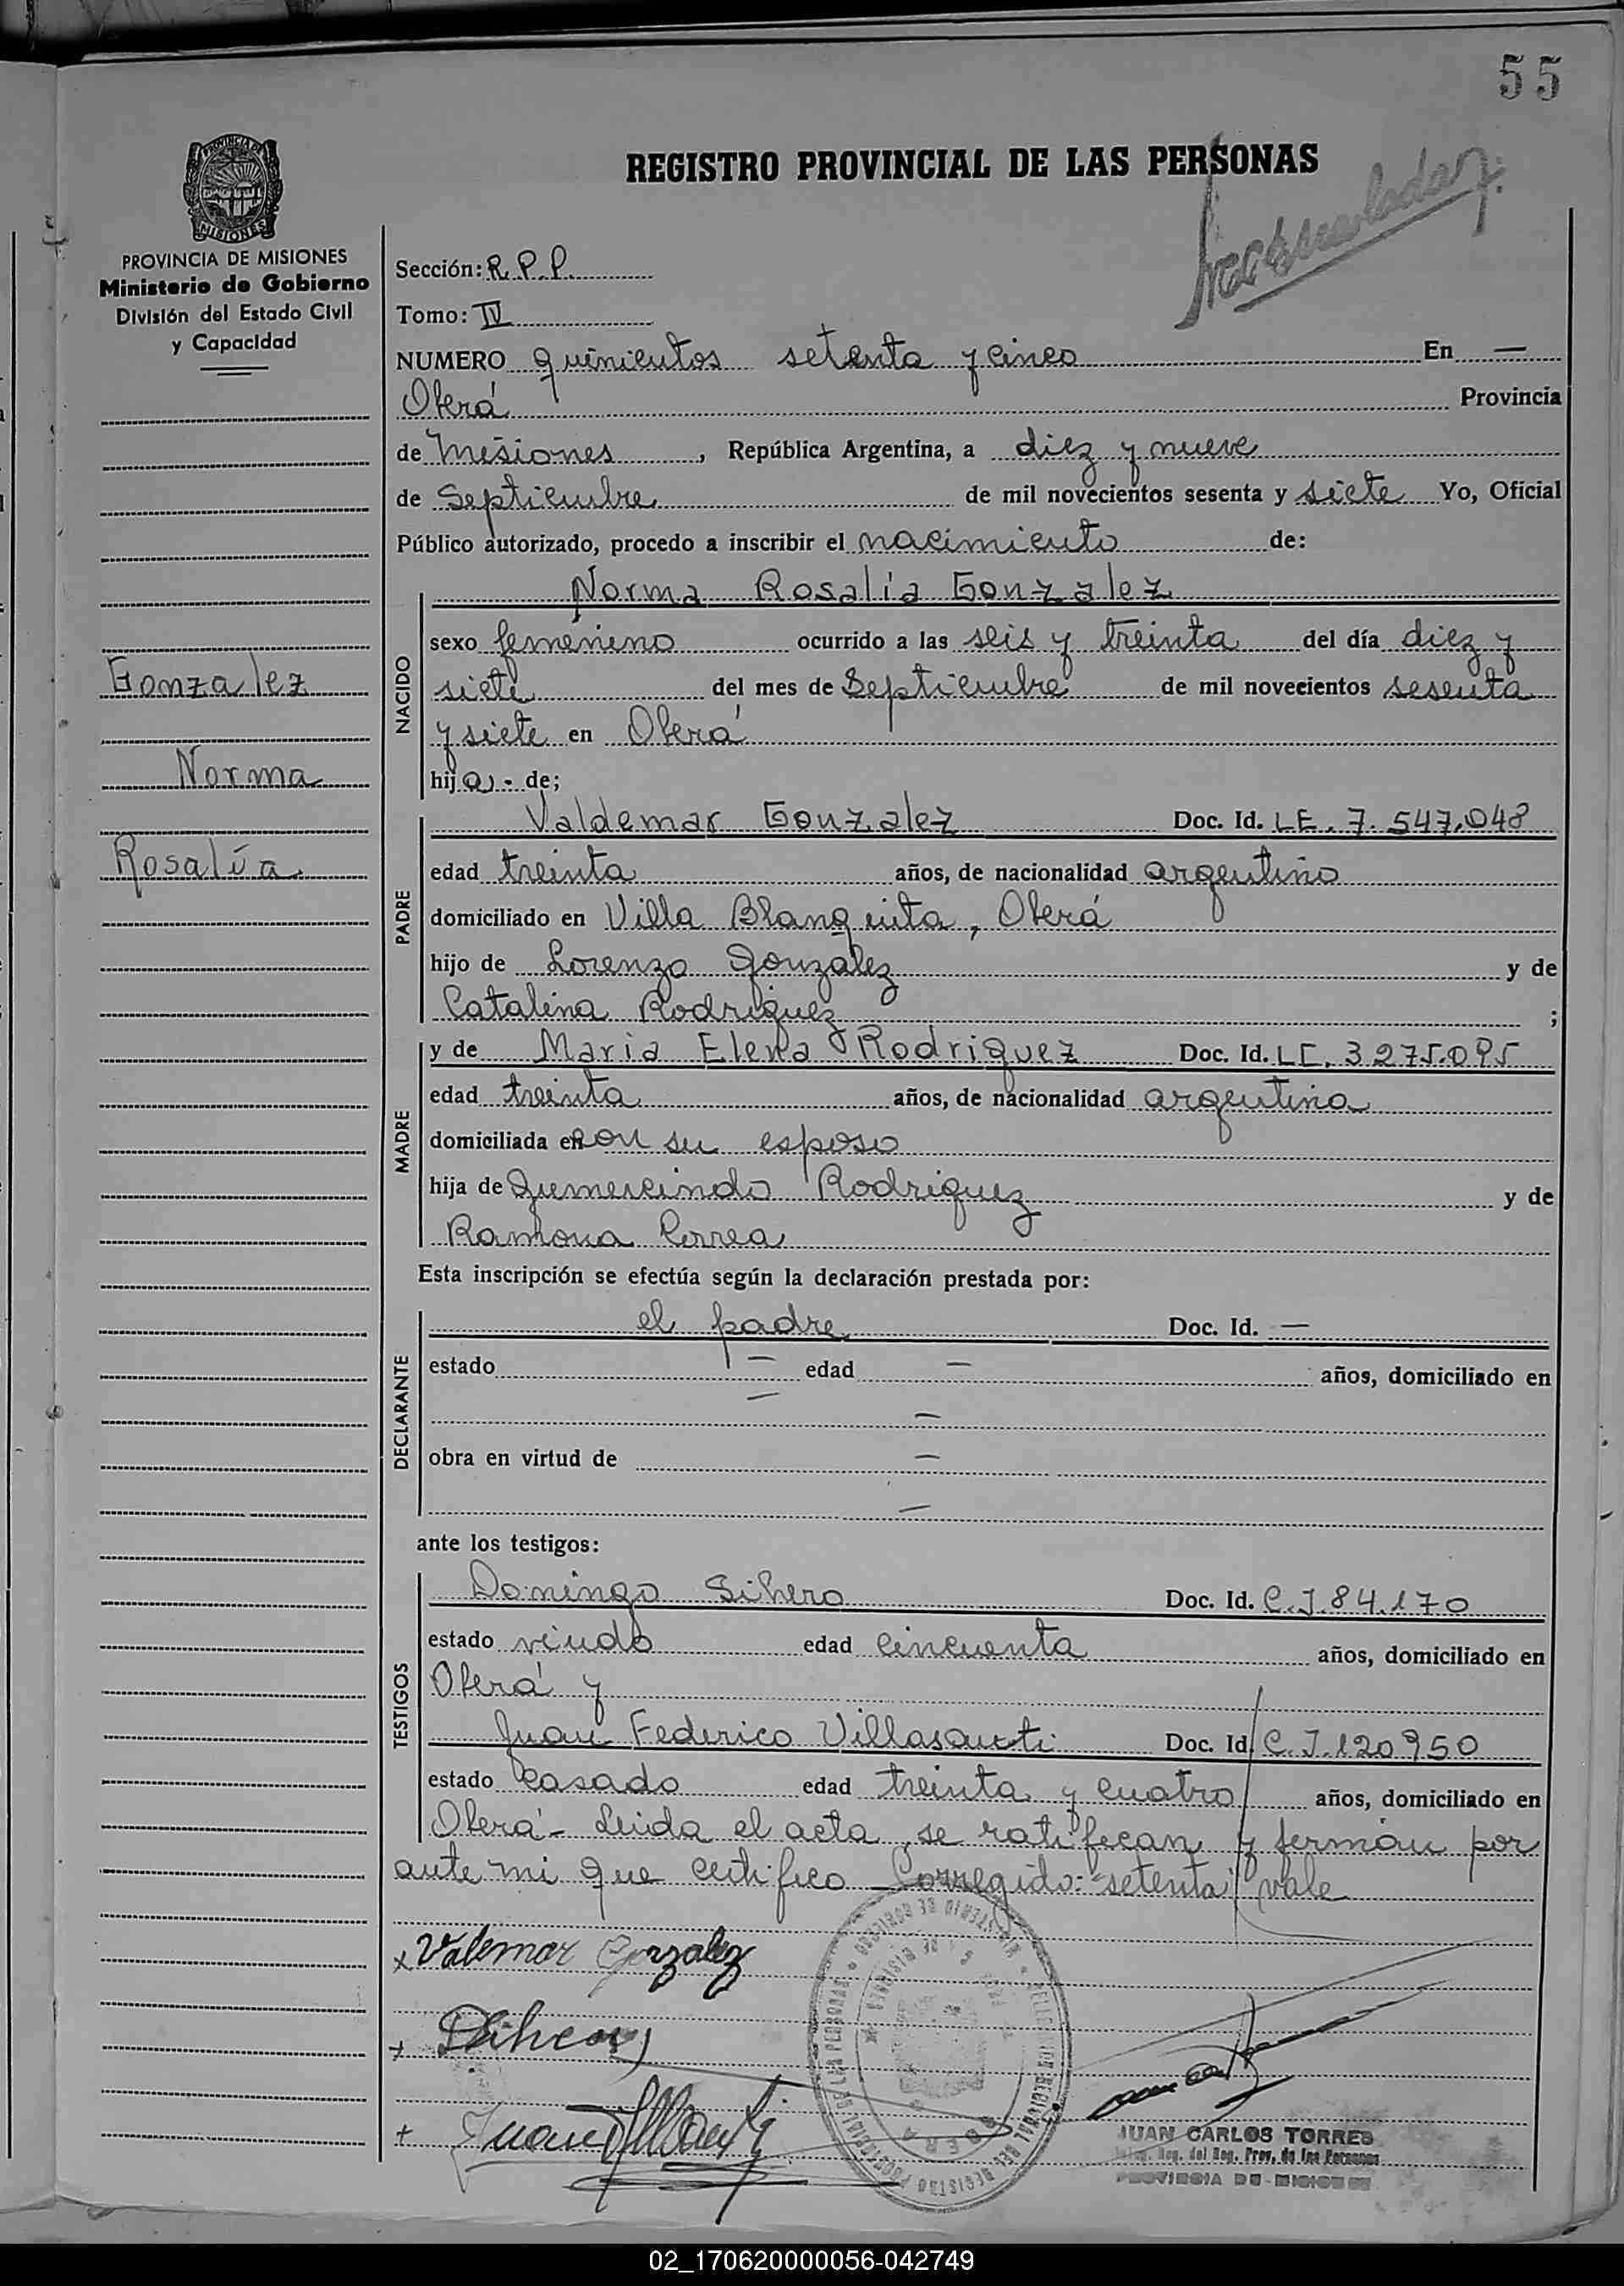 55
REGISTRO PROVINCIAL DE LAS PERSONAS
PROVINCIA DE
MISIONES
PROVINCIA DE MISIONES
Ministerio de Gobierno
División del Estado Civil
y Capacidad
Sección: R. P. P.
Tomo: IV
NUMERO quinientos setenta y cinco En —
Oberá Provincia
de Misiones, República Argentina, a diez y nueve
de Septiembre de mil novecientos sesenta y siete Yo, Oficial
Público autorizado, procedo a inscribir el nacimiento de:
Norma Rosalia Gonzalez
NACIDO
sexo femenino ocurrido a las seis y treinta del día diez y
siete del mes de Septiembre de mil novecientos sesenta
y siete en Oberá
hija.- de;
Gonzalez
Norma
Rosalía
PADRE
Valdemar Gonzalez Doc. Id. LE. 7.547.048
edad treinta años, de nacionalidad argentino
domiciliado en Villa Blanquita, Oberá
hijo de Lorenzo Gonzalez y de
Catalina Rodriguez ;
MADRE
y de Maria Elena Rodriguez Doc. Id. LC. 3.275.095
edad treinta años, de nacionalidad argentina
domiciliada en con su esposo
hija de Gumercindo Rodriguez y de
Ramona Correa
Esta inscripción se efectúa según la declaración prestada por:
DECLARANTE
el padre Doc. Id. —
estado — edad — años, domiciliado en
—
obra en virtud de —
—
ante los testigos:
TESTIGOS
Domingo Sihero Doc. Id. C.I.84.170
estado viudo edad cincuenta años, domiciliado en
Oberá y
Juan Federico Villasanti Doc. Id. C.I.120950
estado casado edad treinta y cuatro años, domiciliado en
Oberá- Leida el acta, se ratifican y firman por
ante mi que certifico Corregido: "setenta" vale
x Valemar Gonzalez
JUAN CARLOS TORRES
Reg. del Reg. Prov. de las Personas
PROVINCIA DE MISIONES
02_170620000056-042749